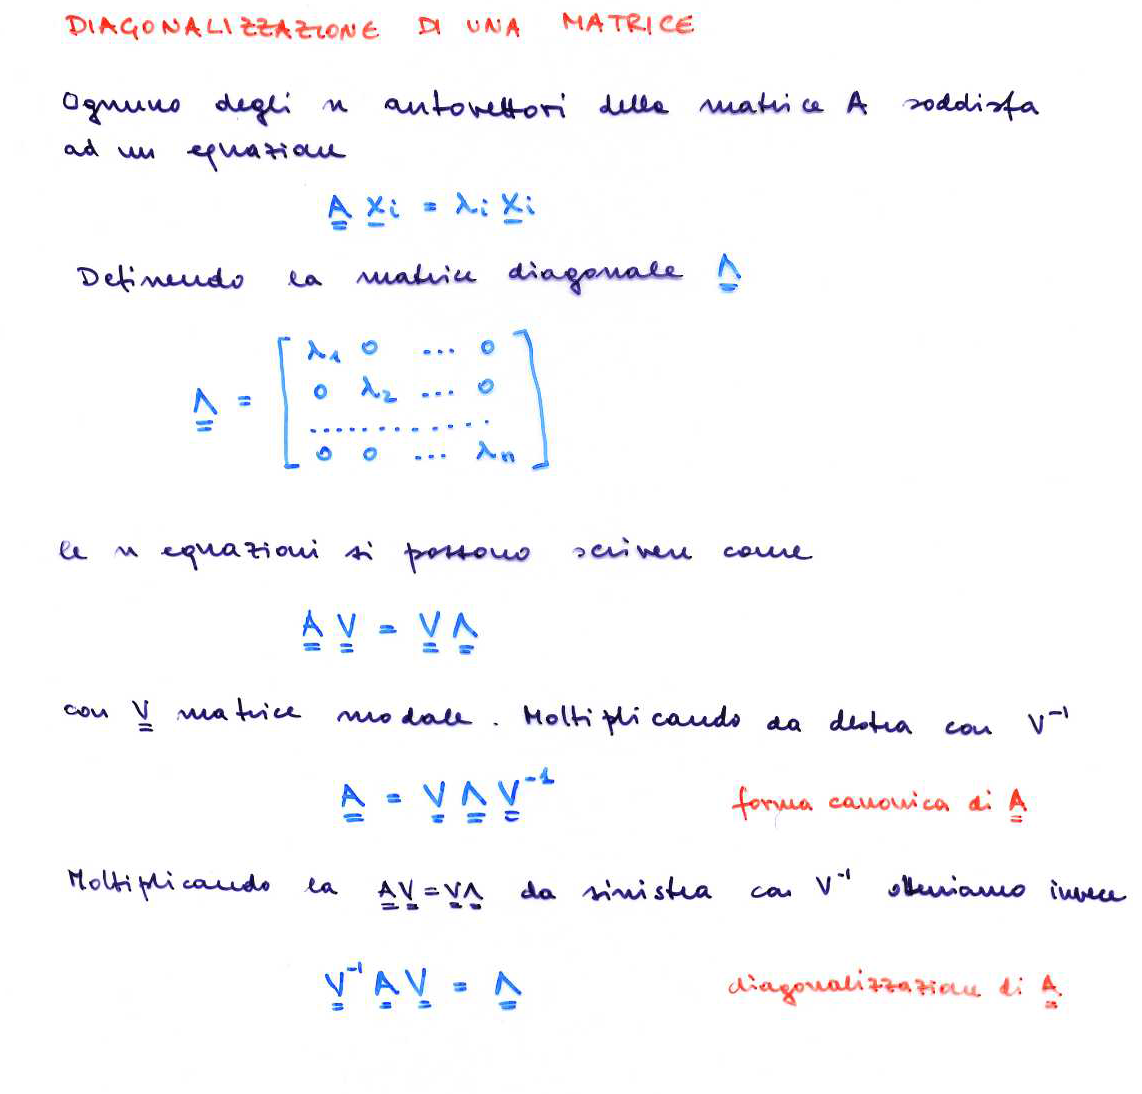 DIAGONALIZZAZIONE DI UNA MATRICE
Ognuno degli n autovettori della matrice A soddisfa
ad un equazione
A xi = λi xi
Definendo la matrice diagonale Λ
λ1 0 ... 0
0 λ2 ... 0
Λ =
.............
0 0 ... λn
le n equazioni si possono scrivere come
A V = V Λ
con V matrice modale. Moltiplicando da destra con V⁻¹
A = V Λ V⁻¹ forma canonica di A
Moltiplicando la AV=VΛ da sinistra con V⁻¹ otteniamo invece
V⁻¹ A V = Λ diagonalizzazione di A